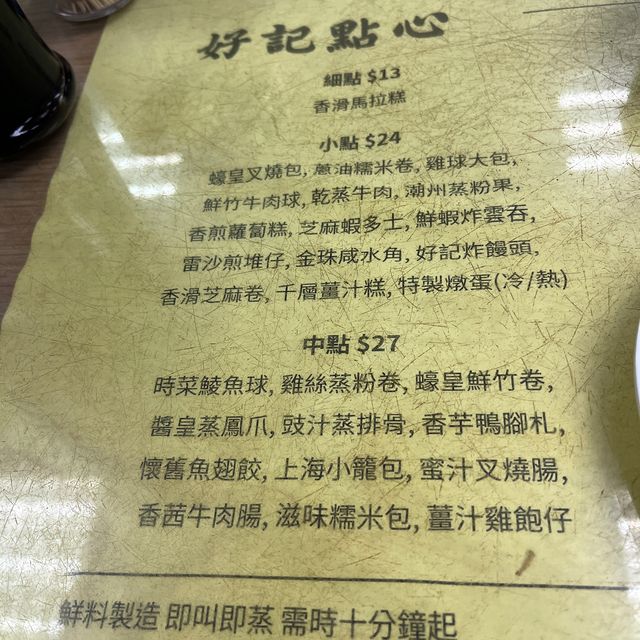 好記點心
細點 $13
香滑馬拉糕
小點 $24
蠔皇叉燒包, 蔥油糯米卷, 雞球大包,
鮮竹牛肉球, 乾蒸牛肉, 潮州蒸粉果,
香煎蘿蔔糕, 芝麻蝦多士, 鮮蝦炸雲吞,
雷沙煎堆仔, 金珠咸水角, 好記炸饅頭,
香滑芝麻卷, 千層薑汁糕, 特製燉蛋(冷/熱)
中點 $27
時菜鯪魚球, 雞絲蒸粉卷, 蠔皇鮮竹卷,
醬皇蒸鳳爪, 豉汁蒸排骨, 香芋鴨腳札,
懷舊魚翅餃, 上海小籠包, 蜜汁叉燒腸,
香茜牛肉腸, 滋味糯米包, 薑汁雞飽仔
鮮料製造 即叫即蒸 需時十分鐘起